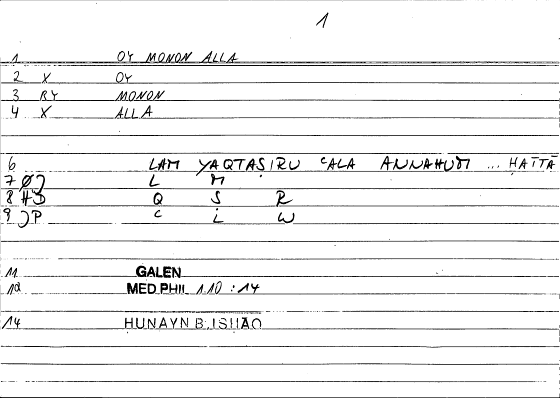 1
1 OY MONON ALLA
2 X OY
3 RY MONON
4 X ALLA
6 LAM YAQTAṢIRU ʿALA ANNAHUM ... ḤATTĀ
7 L M
8 Q Ṣ R
9 ʿ L W
11 GALEN
12 MED PHIL 110 : 14
14 HUNAYN B. ISHAQ